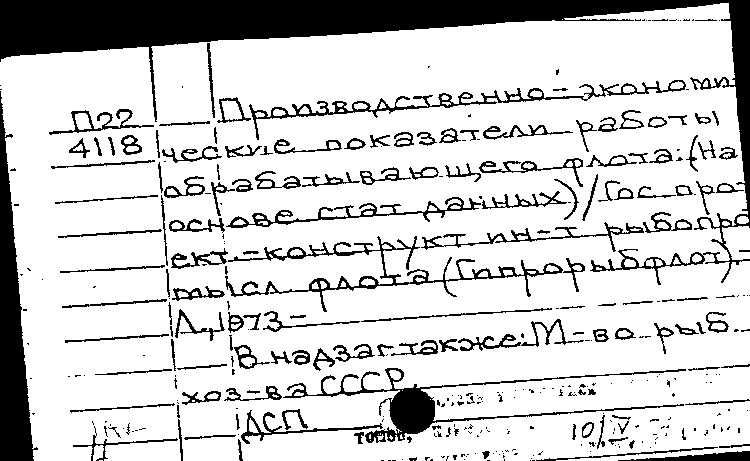 П22
4118
Производственно-экономи
ческие показатели работы
обрабатывающего флота: (На
основе стат данных) / Гос про
ект.-конструкт ин-т рыбопро
мысл флота (Гипрорыбфлот).-
Л., 1973-
В надзаг также: М-во рыб
хоз-ва СССР.
ДСП
10/IV